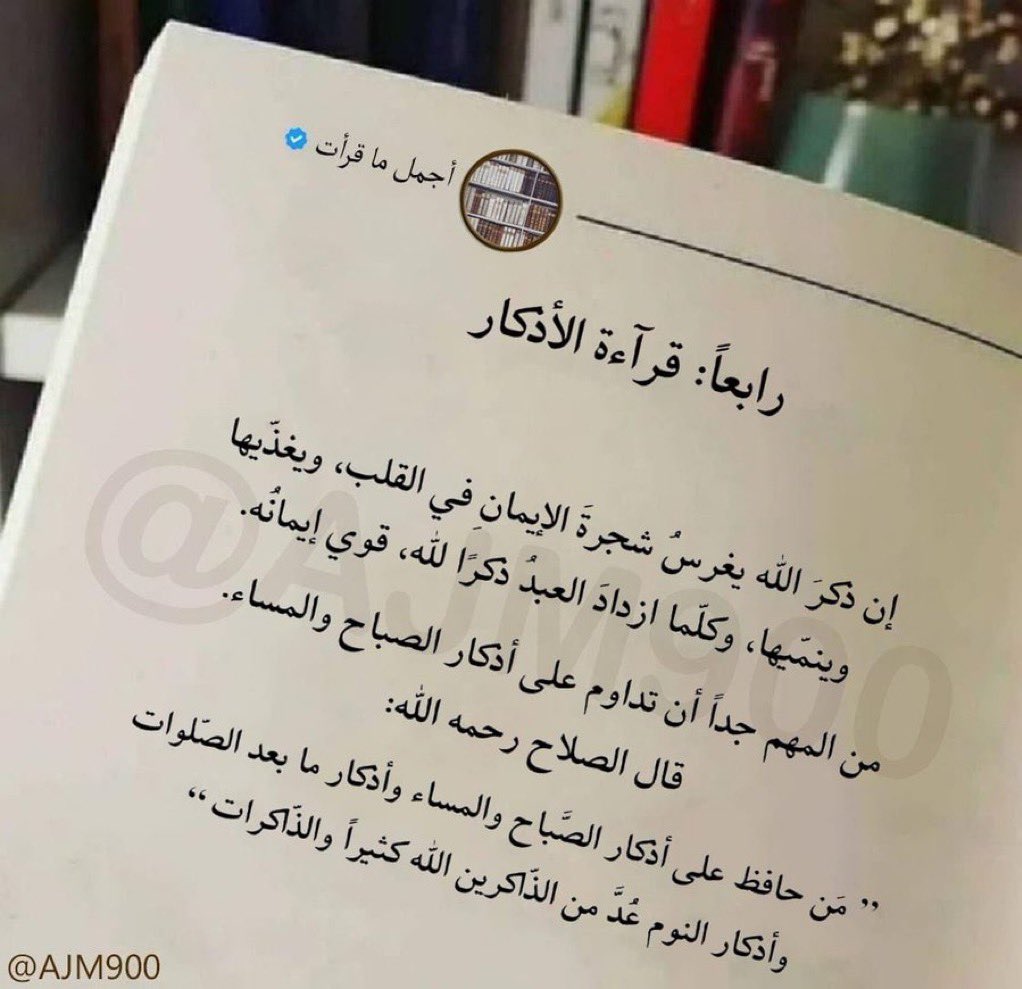 أجمل ما قرأت
رابعاً: قرآءة الأذكار
إن ذكرَ الله يغرسُ شجرةَ الإيمانِ في القلب، ويغذّيها
وينمّيها، وكلّما ازدادَ العبدُ ذكرًا لله، قوي إيمانُه.
من المهم جداً أن تداوم على أذكار الصباح والمساء.
قال الصلاح رحمه الله:
” مَن حافظ على أذكار الصَّباح والمساء وأذكار ما بعد الصّلوات
وأذكار النوم عُدَّ من الذّاكرين الله كثيراً والذّاكرات “
@AJM900
@AJM900